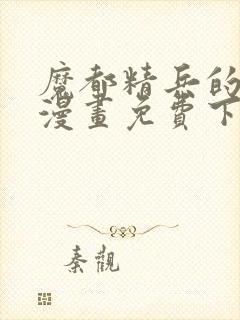 魔都精兵的
漫畫免費下
秦觀